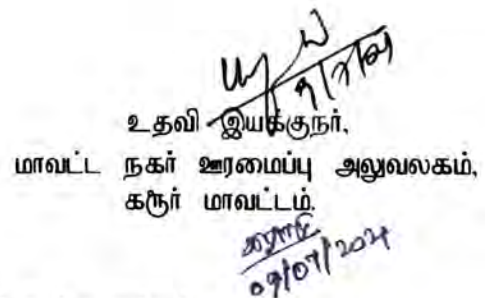 உதவி இயக்குநர்,
மாவட்ட நகர் ஊரமைப்பு அலுவலகம்,
கரூர் மாவட்டம்.
09/07/2021